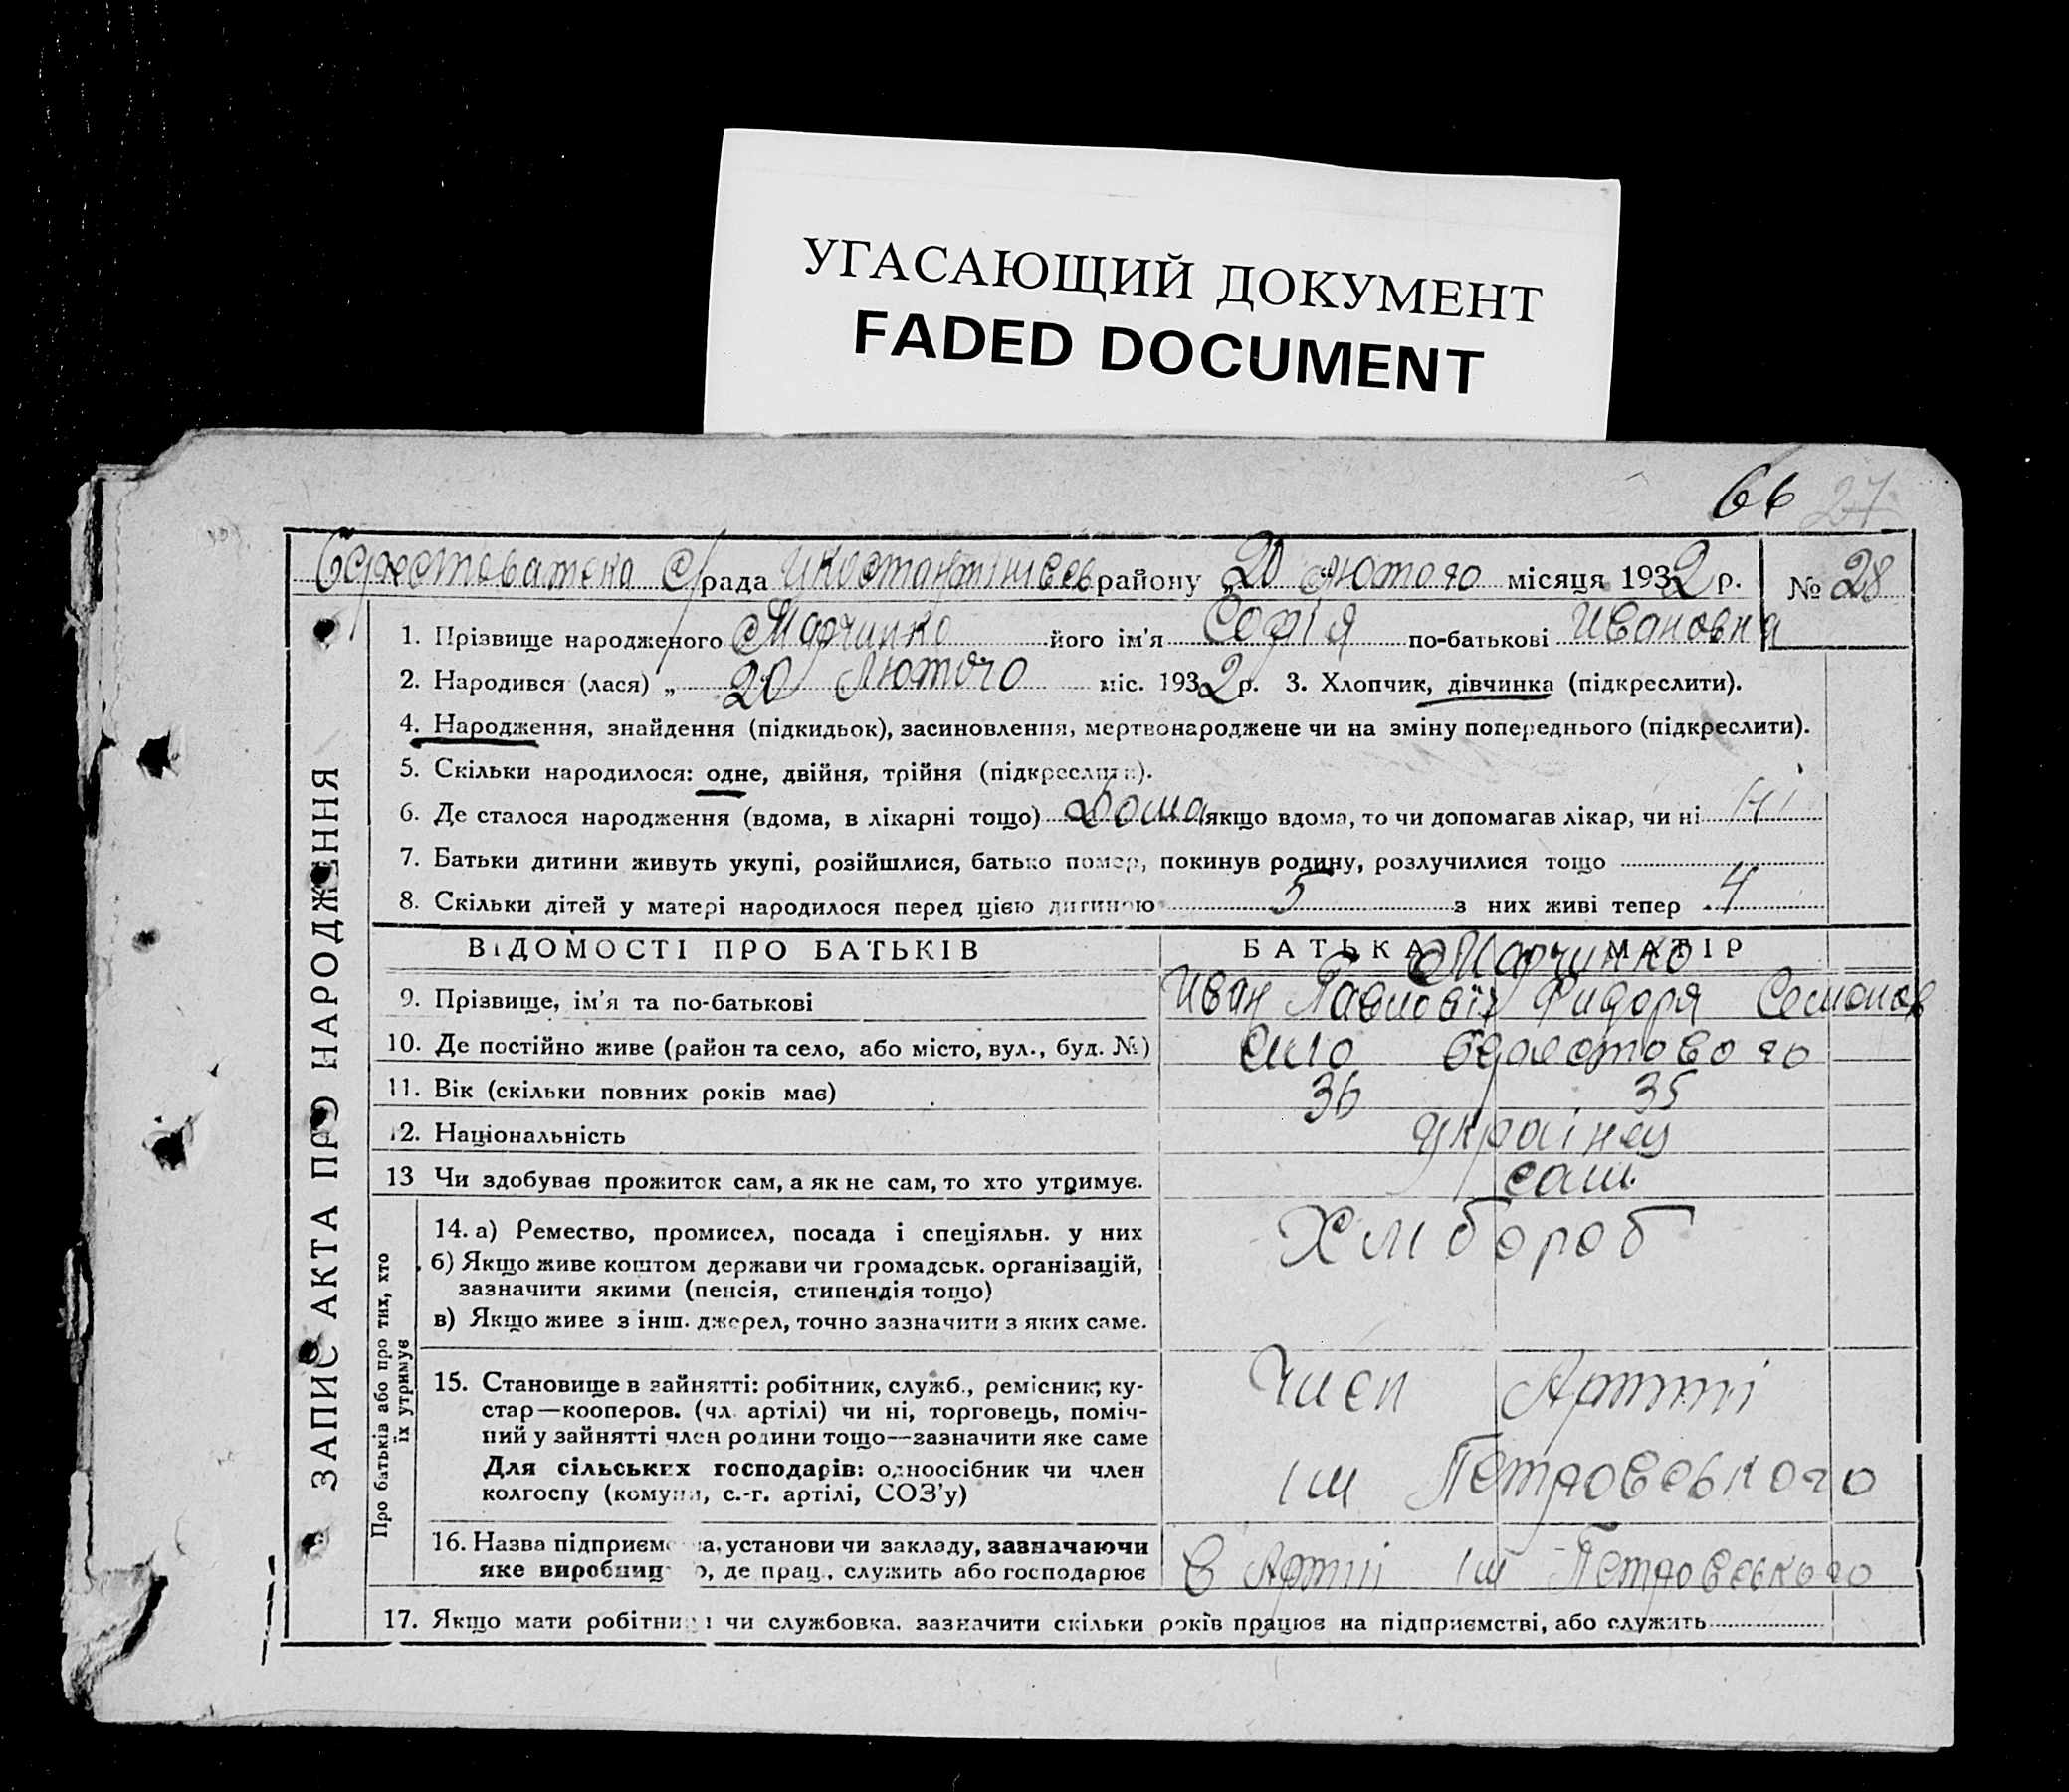 УГАСАЮЩИЙ ДОКУМЕНТ
FADED DOCUMENT
66 27
С/рада району „20 лютого місяця 1932 р. № 28
1. Прізвище народженого Марчинко його ім'я Софія по-батькові Ивановна
2. Народився (лася) „ 20 Лютого міс. 1932 р. 3. Хлопчик, дівчинка (підкреслити).
4. Народження, знайдення (підкидьок), засиновлення, мертвонароджене чи на зміну попереднього (підкреслити).
5. Скільки народилося: одне, двійня, трійня (підкреслити).
6. Де сталося народження (вдома, в лікарні тощо) Дома якщо вдома, то чи допомагав лікар, чи ні Ні
7. Батьки дитини живуть укупі, розійшлися, батько помер, покинув родину, розлучилися тощо
8. Скільки дітей у матері народилося перед цією дитиною 5 з них живі тепер 4
ВІДОМОСТІ ПРО БАТЬКІВ БАТЬКА МАТІР
Марчинко
9. Прізвище, ім'я та по-батькові Иван Павлович Фидоря Семонов
10. Де постійно живе (район та село, або місто, вул., буд. №) село
11. Вік (скільки повних років має) 36 35
12. Національність Українец
13 Чи здобуває прожиток сам, а як не сам, то хто утримує. сам.
14. а) Ремество, промисел, посада і спеціяльн. у них Хлібороб
б) Якщо живе коштом держави чи громадськ. організацій,
зазначити якими (пенсія, стипендія тощо)
в) Якщо живе з інш. джерел, точно зазначити з яких саме.
15. Становище в зайнятті: робітник, служб., ремісник; ку-
стар—кооперов. (чл. артілі) чи ні, торговець, поміч-
ний у зайнятті член родини тощо—зазначити яке саме
Для сільських господарів: одноосібник чи член
колгоспу (комуни, с.-г. артілі, СОЗ'у)
Член Артілі
ім Петровського
16. Назва підприємства, установи чи закладу, зазначаючи
яке виробництво, де прац., служить або господарює
В Артілі ім Петровського
17. Якщо мати робітниця чи службовка, зазначити скільки років працює на підприємстві, або служить
ЗАПИС АКТА ПРО НАРОДЖЕННЯ
Про батьків або про тих, хто
їх утримує